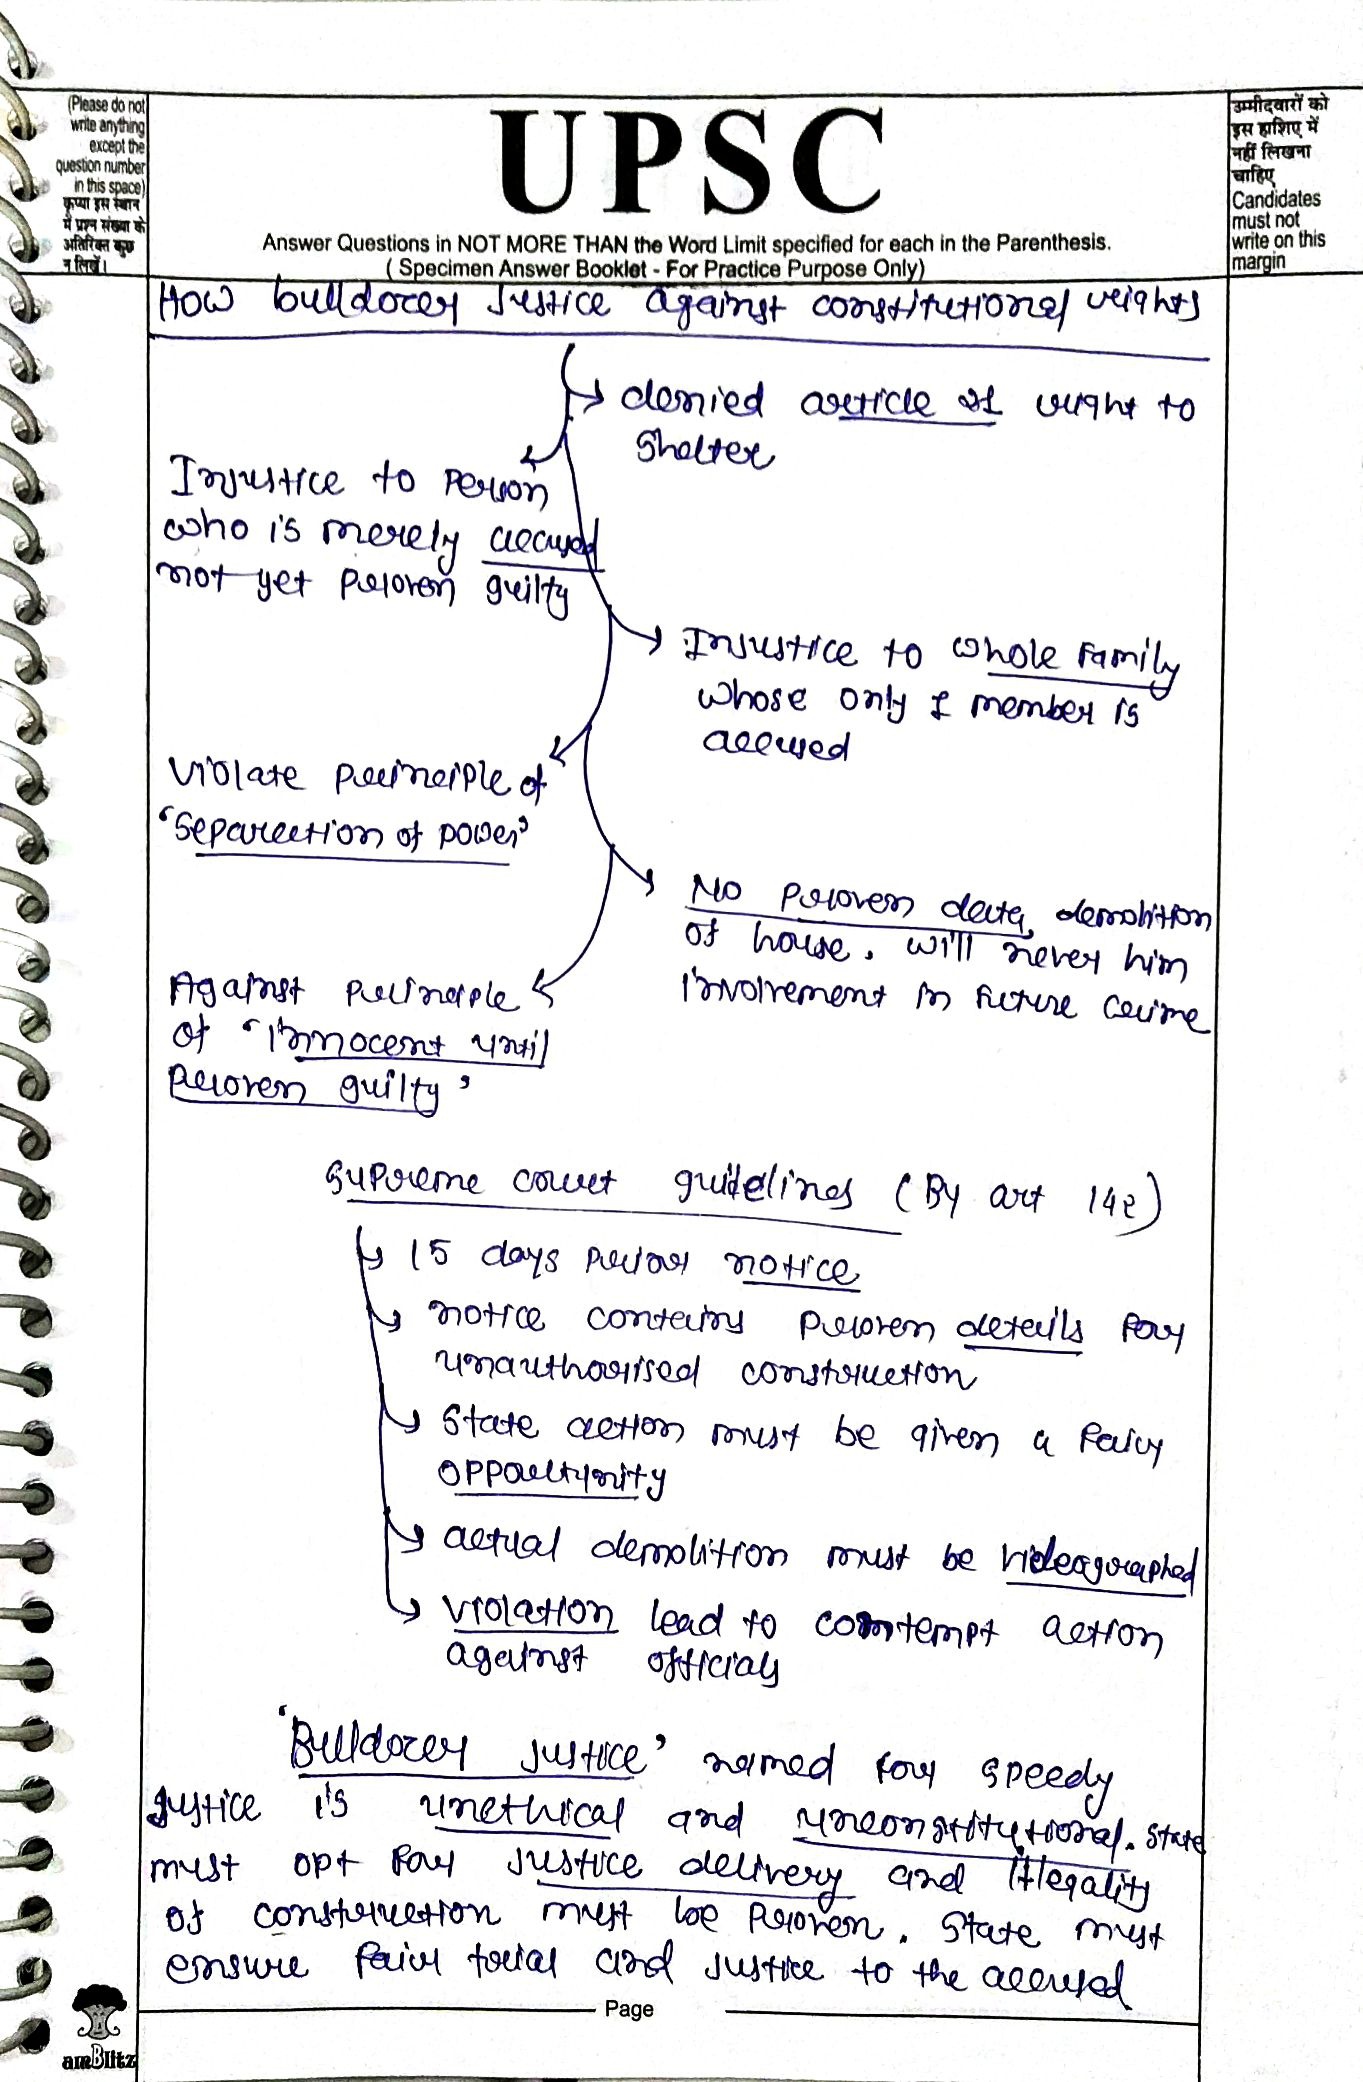 (Please do not
write anything
except the
question number
in this space)
कृप्या इस स्थान
में प्रश्न संख्या के
अतिरिक्त कुछ
न लिखें।
UPSC
Answer Questions in NOT MORE THAN the Word Limit specified for each in the Parenthesis.
( Specimen Answer Booklet - For Practice Purpose Only)
उम्मीदवारों को
इस हाशिए में
नहीं लिखना
चाहिए
Candidates
must not
write on this
margin
How bulldozer justice against constitutional rights
denied article 21 right to
shelter
Injustice to person
who is merely accused
not yet proven guilty
Injustice to whole family
whose only 1 member is
accused
Violate principle of
'separation of power'
No proven data, demolition
of house, will never him
involvement in future crime
Against principle
of 'innocent until
proven guilty'
Supreme court guidelines (By art 142)
15 days prior notice
notice contains proven details for
unauthorised construction
State action must be given a fair
opportunity
actual demolition must be videographed
violation lead to contempt action
against officials
'Bulldozer justice' named for speedy
justice is unethical and unconstitutional. State
must opt for justice delivery and illegality
of construction must be proven. State must
ensure fair trial and justice to the accused
Page
amBlitz